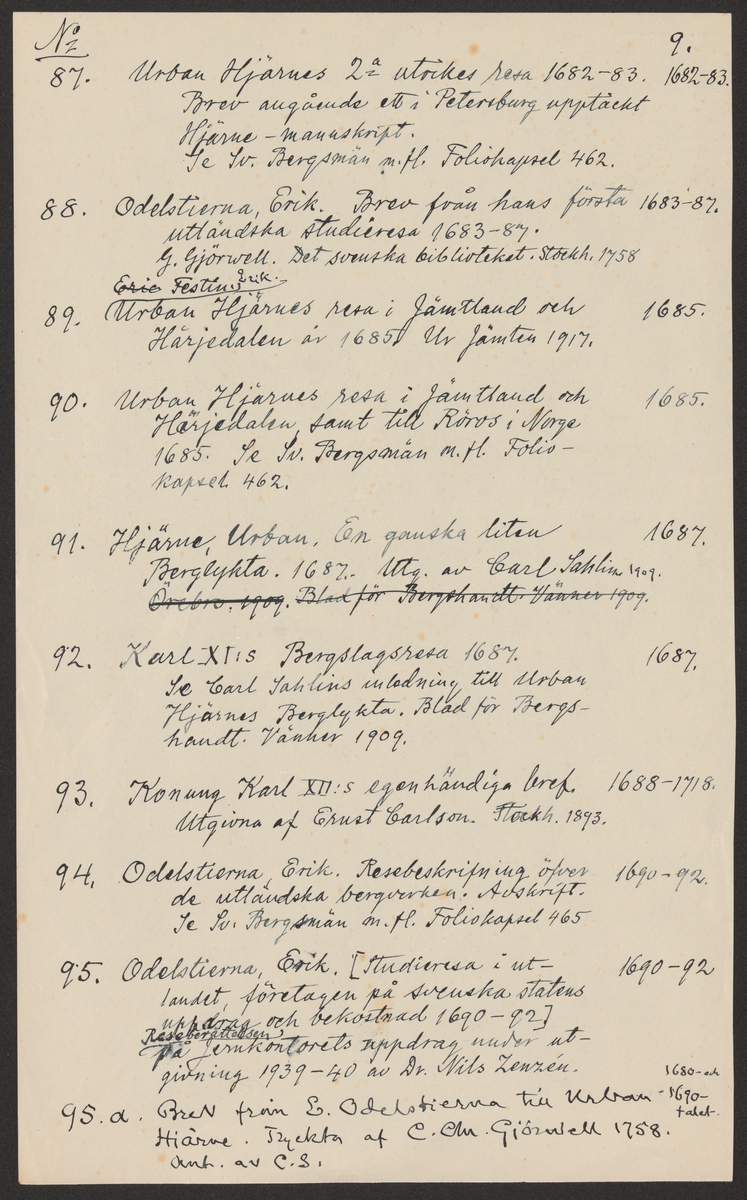 No 9.
87. Urban Hjärnes 2a utrikes resa 1682-83. 1682-83.
Brev angående ett i Petersburg upptäckt
Hjärne-manuskript.
Se Sv. Bergsmän m.fl. Foliokapsel 462.
88. Odelstierna, Erik. Brev från hans första 1683-87.
utländska studieresa 1683-87.
G. Gjörwell. Det svenska biblioteket. Stockh. 1758
Eric Festin, Erik.
89. Urban Hjärnes resa i Jämtland och 1685.
Härjedalen år 1685. Ur Jämten 1917.
90. Urban Hjärnes resa i Jämtland och 1685.
Härjedalen, samt till Röros i Norge
1685. Se Sv. Bergsmän m.fl. Folio-
kapsel 462.
91. Hjärne, Urban. En ganska liten 1687.
Berglykta. 1687. Utg. av Carl Sahlin 1909.
Örebro. 1909. Blad för Bergshandt. Vänner 1909.
92. Karl XI:s Bergslagsresa 1687. 1687.
Se Carl Sahlins inledning till Urban
Hjärnes Berglykta. Blad för Bergs-
handt. Vänner 1909.
93. Konung Karl XII:s egenhändiga bref. 1688-1718.
Utgivna af Ernst Carlson. Stockh. 1893.
94. Odelstierna, Erik. Resebeskrifning öfver 1690-92.
de utländska bergverken. Avskrift.
Se Sv. Bergsmän m.fl. Foliokapsel 465
95. Odelstierna, Erik. [Studieresa i ut- 1690-92
landet, företagen på svenska statens
uppdrag och bekostnad 1690-92]
Reseberättelsen
på Jernkontorets uppdrag under ut-
givning 1939-40 av Dr. Nils Zenzén.
95.a. Brev från E. Odelstierna till Urban 1680- och 1690-talet.
Hiärne. Tryckta af C. Chr. Gjörwell 1758.
Ant. av C.S.